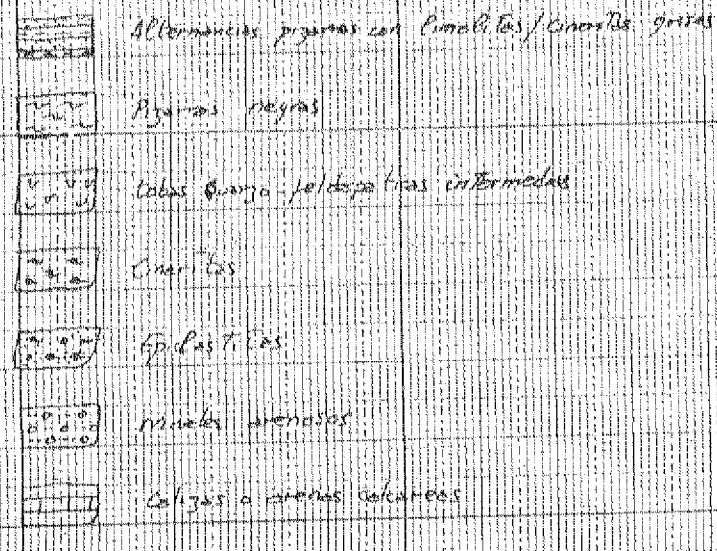 Alternancias pizarras con limolitas/cineritas grises
Pizarras negras
tobas quarzo-feldespáticas intermedias
Cineritas
Epiclastitas
Niveles arenosos
Calizas o arenas calcareas